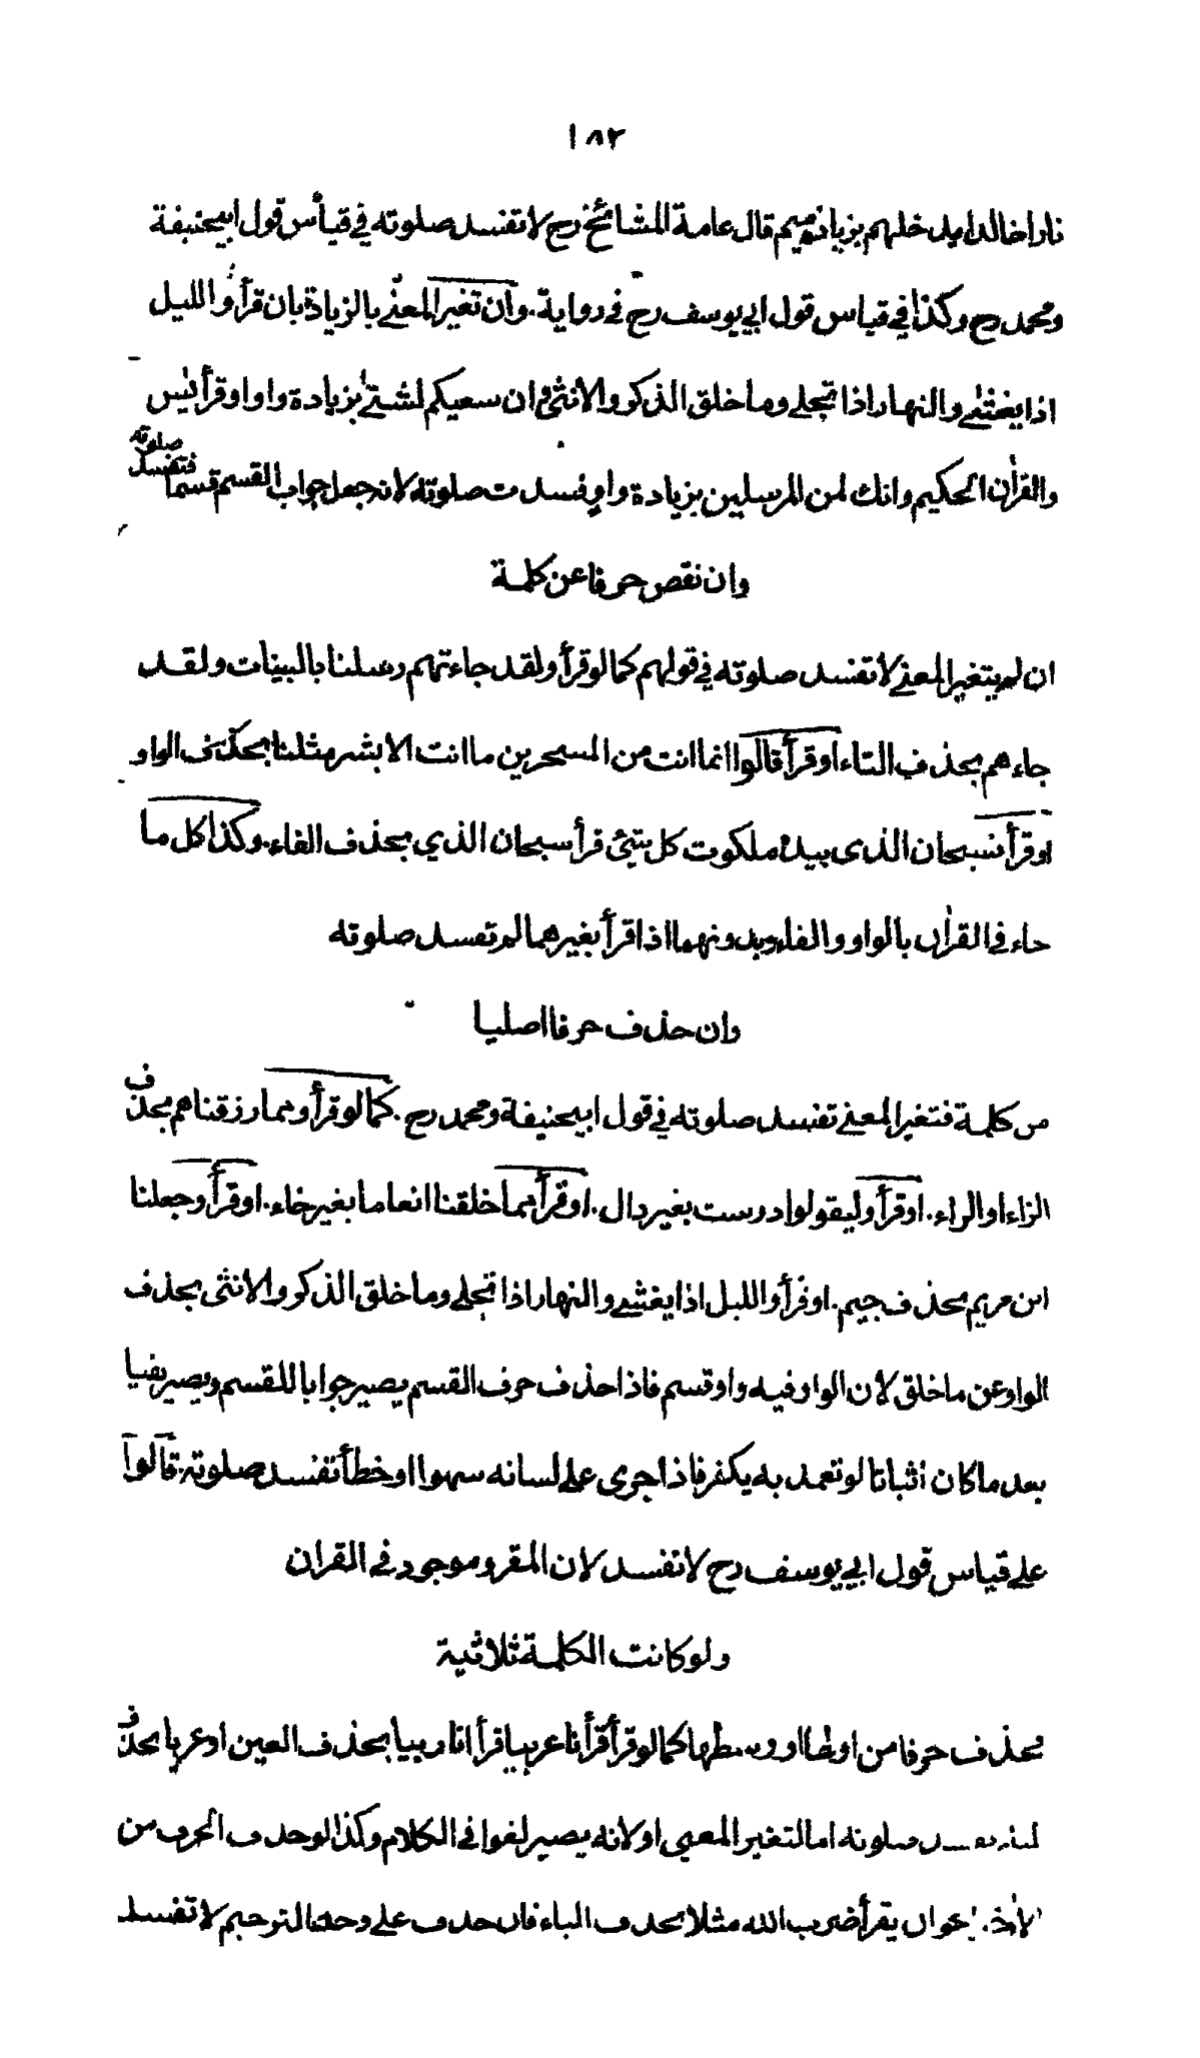 ١٨٢
نارا خالدا يدخلهم بزيادة ميم قال عامة المشائخ رح لا تفسد صلوته في قياس قول ابيحنيفة
ومحمد رح وكذا في قياس قول ابي يوسف رح في رواية. وان تغير المعنى بالزيادة بان قرأ والليل
اذا يغشى والنهار اذا تجلى وما خلق الذكر والانثى وان سعيكم لشتى بزيادة واو او قرأ يٰس
والقراٰن الحكيم وانك لمن المرسلين بزيادة واو فسدت صلوته لانه جعل جواب القسم قسما فتفسد صلوته
وان نقص حرفا عن كلمة
ان لم يتغير المعنى لا تفسد صلوته في قولهم كما لو قرأ ولقد جاءتهم رسلنا بالبينات ولقد
جاءهم بحذف التاء او قرأ قالوا انما انت من المسحرين ما انت الا بشر مثلنا بحذف الواو
او قرأ فسبحان الذى بيده ملكوت كل شئ قرأ سبحان الذي بحذف الفاء. وكذا كل ما
جاء في القراٰن بالواو والفاء وبدونهما اذا قرأ بغيرهما لم تفسد صلوته
وان حذف حرفا اصليا
من كلمة فتغير المعنى تفسد صلوته في قول ابيحنيفة ومحمد رح. كما لو قرأ ومما رزقناهم بحذف
الزاء او الراء. او قرأ وليقولوا درست بغير دال. او قرأ مما خلقنا انعاما بغير خاء. او قرأ وجعلنا
ابن مريم بحذف جيم. او قرأ والليل اذا يغشى والنهار اذا تجلى وما خلق الذكر والانثى بحذف
الواو عن ما خلق لان الواو فيه واو قسم فاذا حذف حرف القسم يصير جوابا للقسم ويصير نفيا
بعد ما كان اثباتا لو تعمد به يكفر فاذا جرى على لسانه سهوا او خطأ تفسد صلوته قالوا
على قياس قول ابي يوسف رح لا تفسد لان المقرو موجود في القران
ولو كانت الكلمة ثلاثية
فحذف حرفا من اولها او وسطها كما لو قرأ قرأنا عربيا قرأ انا ربيا بحذف العين او عربا بحذف
صلوته اما لتغير المعنى او لانه يصير لغوا في الكلام وكذا لو حذف الحرف من
يقرأ ضرب الله مثلا بحذف الباء فان حذف على وجه الترخيم لا تفسد